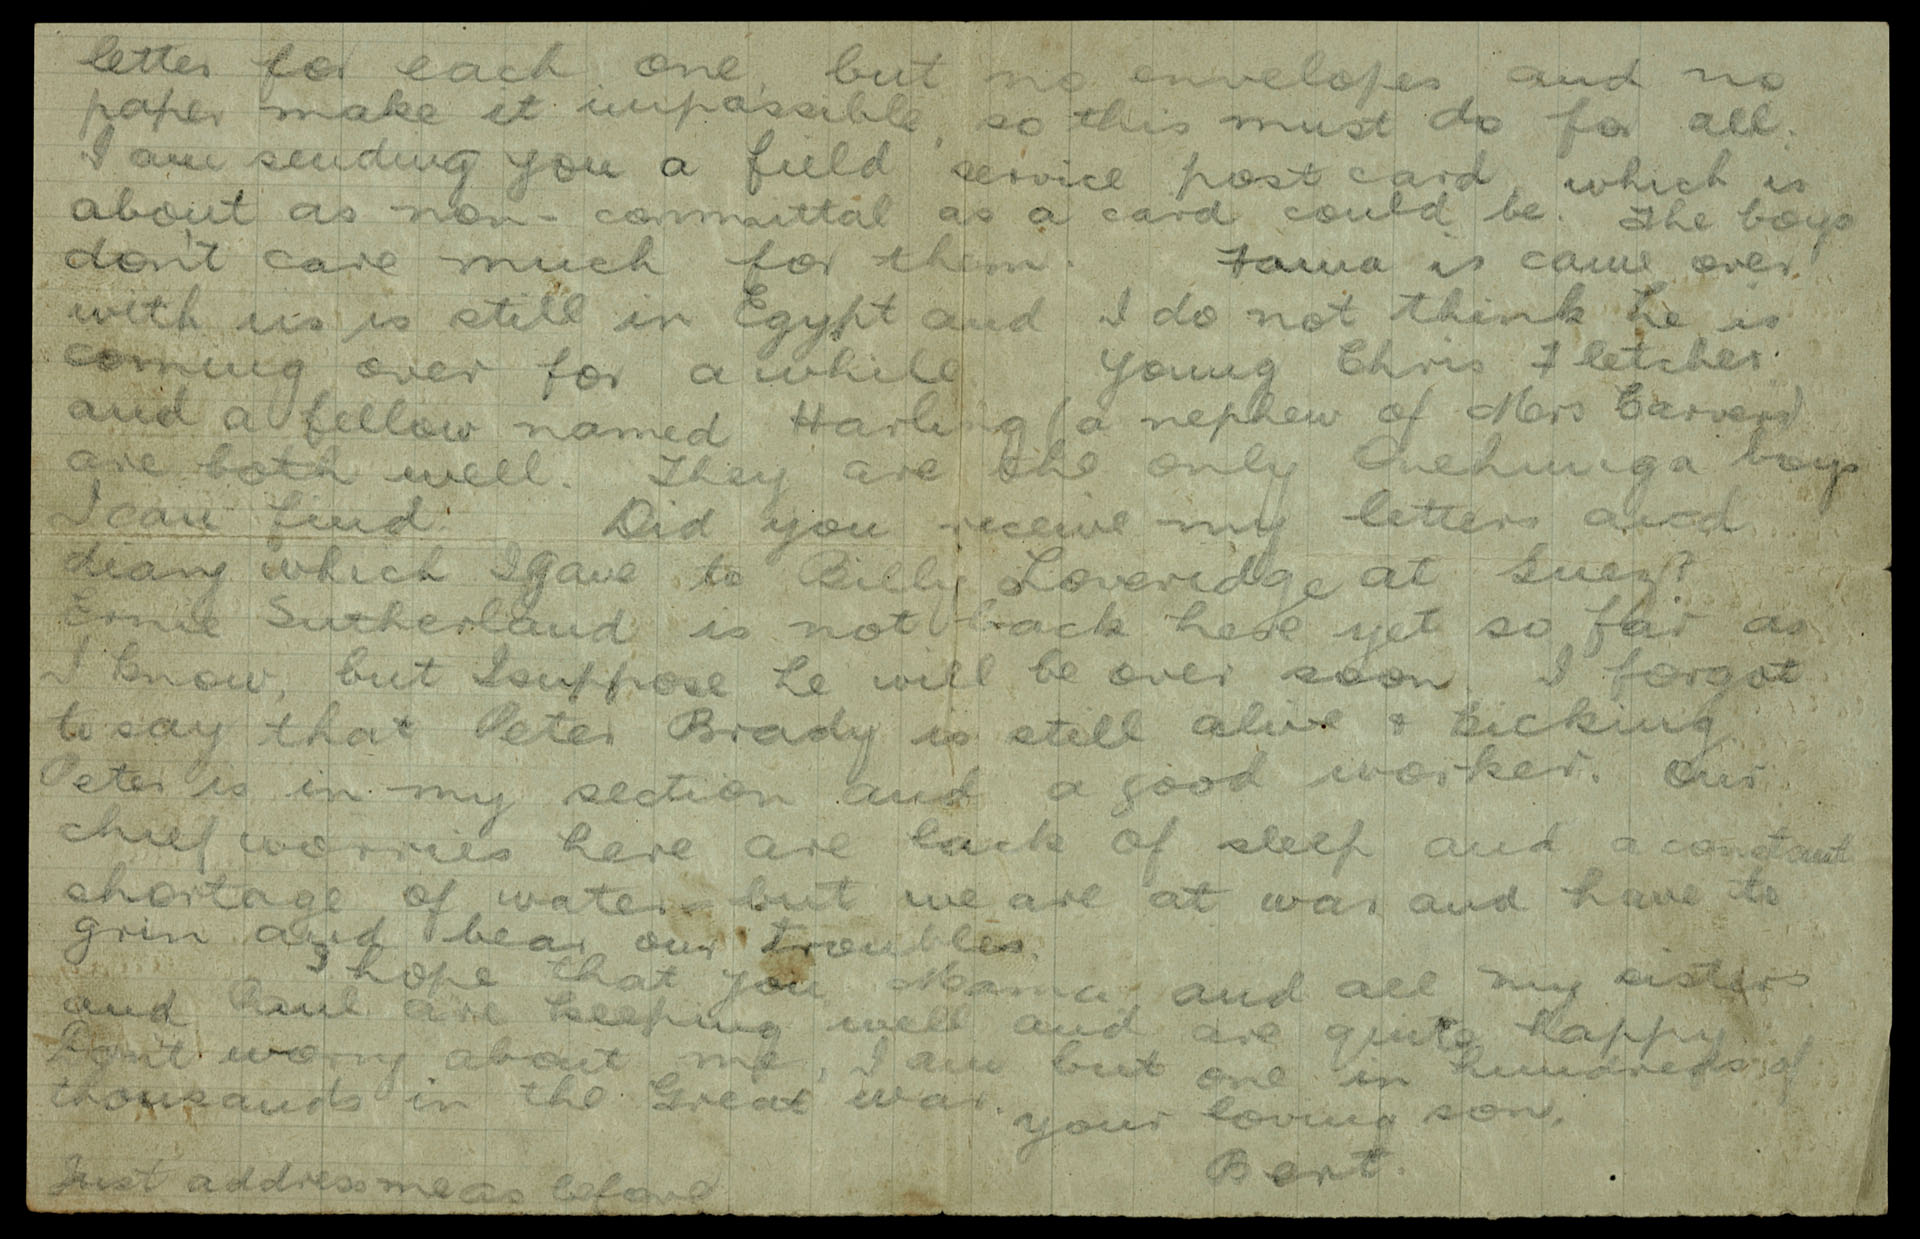 letter for each one, but no envelopes and no
paper make it impossible, so this must do for all.
I am sending you a field service post card, which is
about as non-committal as a card could be. The boys
don't care much for them. is came over
with us is still in Egypt and I do not think he is
coming over for awhile. Young Chris Fletcher
and a fellow named Harling (a nephew of Mrs
are both well. They are the only Onehunga boys
I can find. Did you receive my letters and
diary which I gave to Billy Loveridge at Suez?
Ernie Sutherland is not back here yet so far as
I know, but I suppose he will be over soon. I forgot
to say that Peter Brady is still alive & kicking
Peter is in my section and a good worker. Our
chief worries here are lack of sleep and a constant
shortage of water - but we are at war and have to
grin and bear our troubles.
I hope that you Mama and all my sisters
and Paul are keeping well and are quite happy
Don't worry about me, I am but one in hundreds of
thousands in the Great war.
Your loving son,
Bert.
Just address me as before